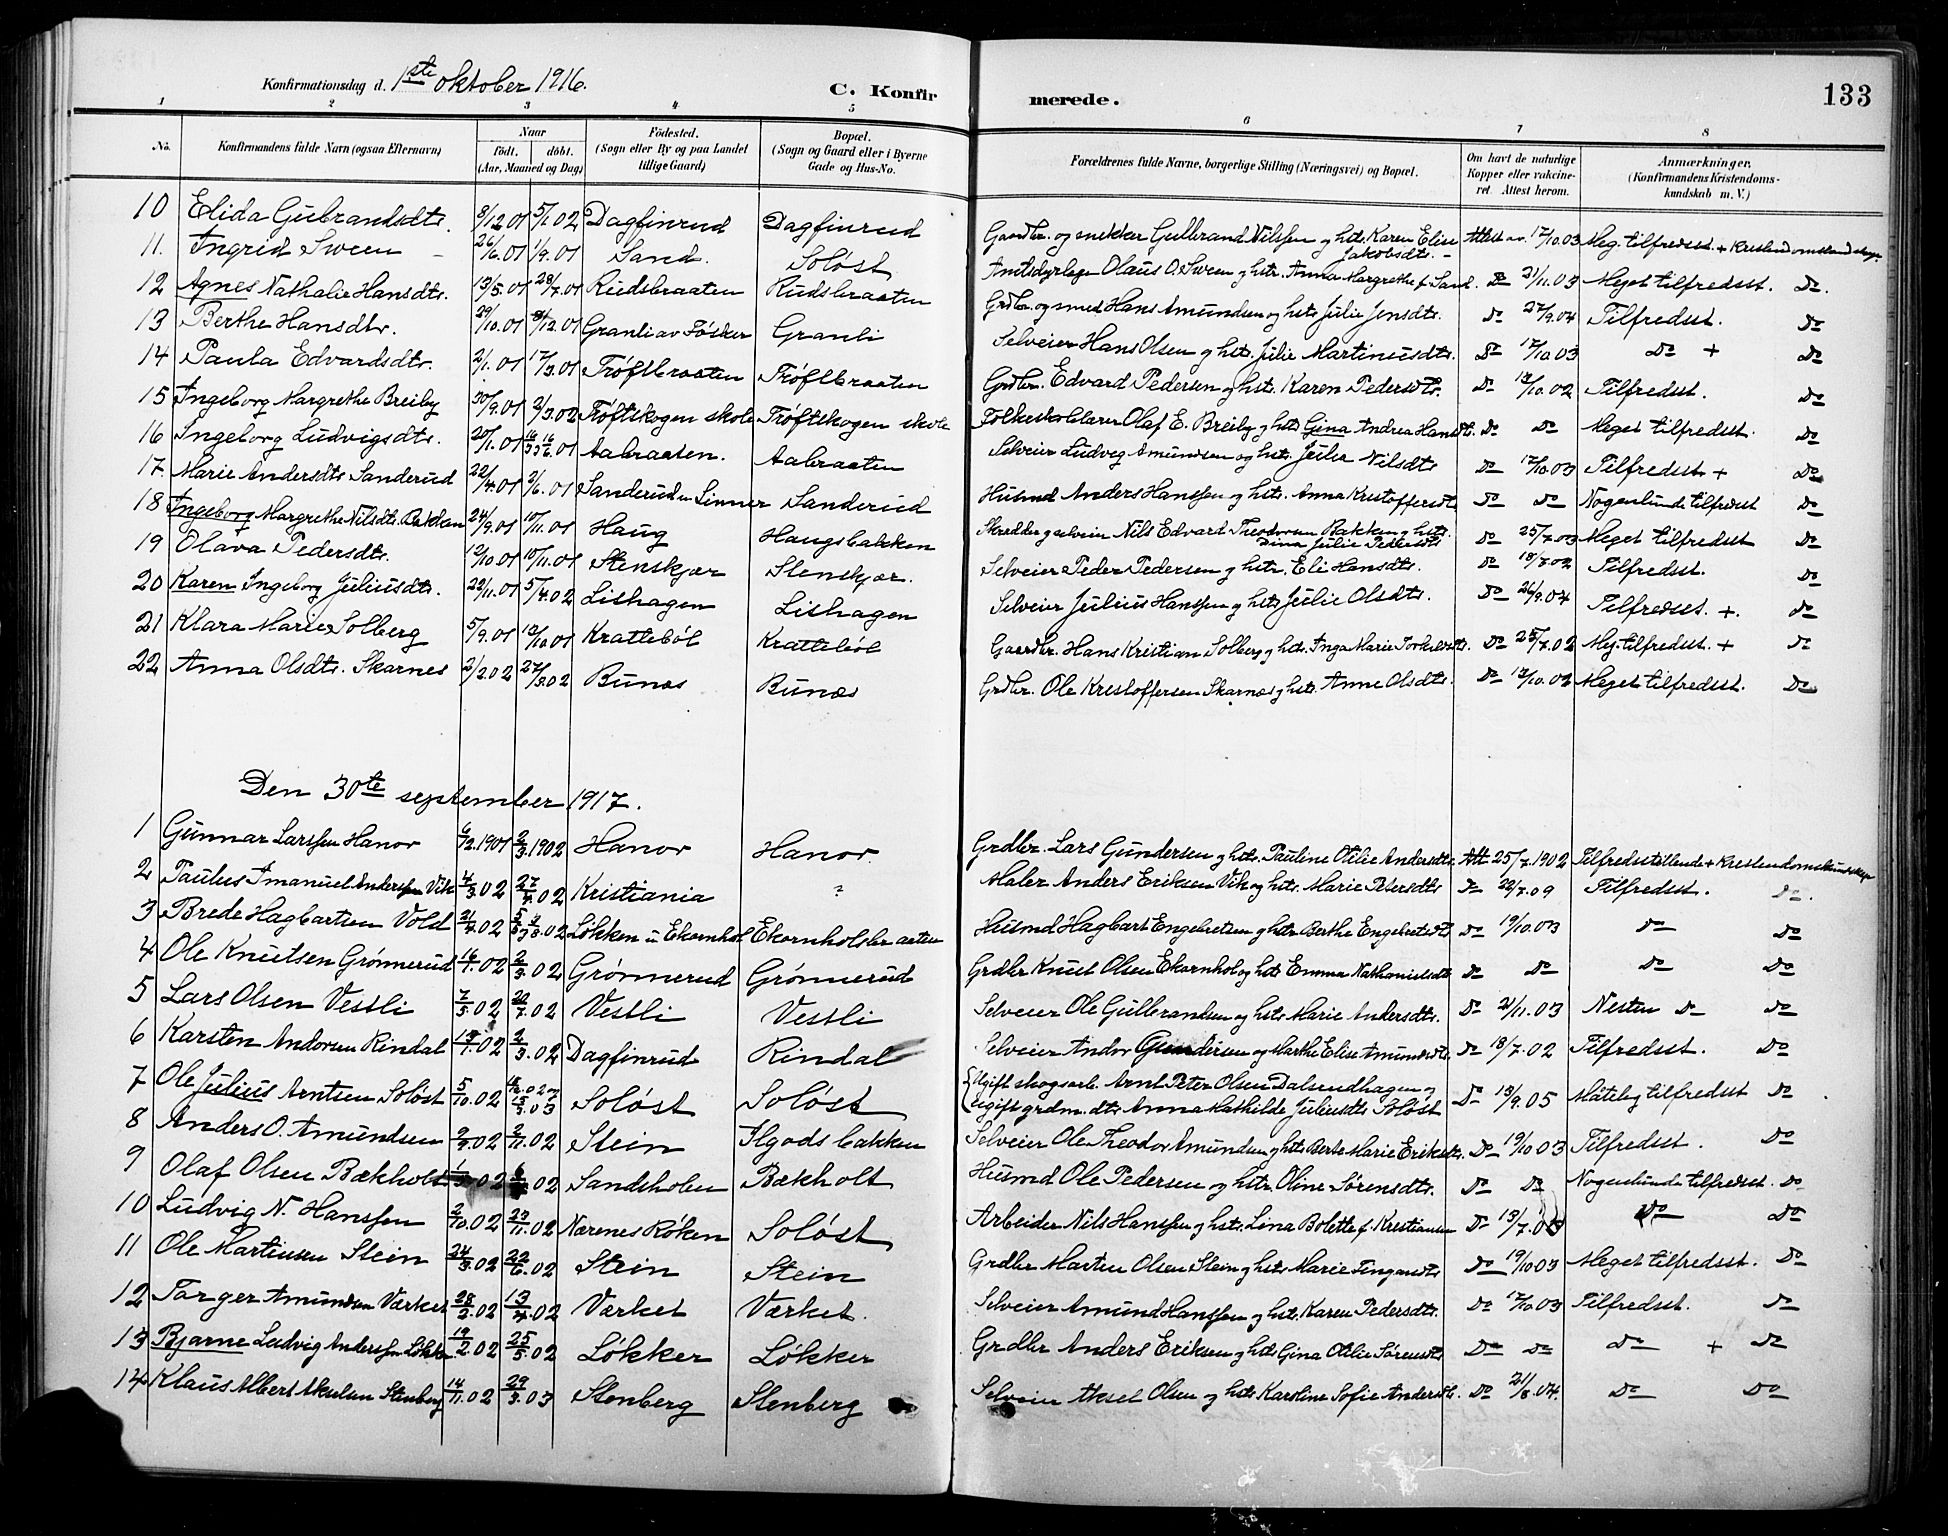 Konfirmationsdag d. 1ste oktober 1916. C. Konfirmerede. 133
1 2 3 4 5 6 7 8
No. Konfirmandens fulde Navn (ogsaa Efternavn) Naar födt. döbt. (Aar, Maaned og Dag) Födested. (Sogn eller By og paa Landet tillige Gaard) Bopæl. (Sogn og Gaard eller i Byerne Gade og Hus-No. Forældrenes fulde Navne, borgerlige Stilling (Næringsvei) og Bopæl. Om havt de naturlige Kopper eller vakcineret. Attest herom. Anmærkninger. (Konfirmandens Kristendomskundskab m. V.)
10 Elida Gubrandsdtr. 8/12.01 5/1.02 Dagfinrud Dagfinrud Gaardbr. og snekker Gulbrand Nilssen og hstr. Karen Elise Jakobsdtr. Attest av. 17/10.03 Meg. tilfredsst. + Kristendomskundskap.
11. Ingrid Sween 26/6.01 1/9.01 Sand. Soløst Amtsdyrlæge Olaus O. Sween og hstr. Anna Margrethe f. Sand. Do 21/11.03 Meget tilfredsst. Do.
12 Agnes Nathalie Hansdtr. 13/5.01 28/7.01 Rudsbraaten Rudsbraaten Grdbr. og smed Hans Amundsen og hstr. Julie Jensdtr. Do 27/9.04 Tilfredsst. Do
13 Berthe Hansdtr. 29/10.01 8/12.01 Granli av Fösker Granli Selveier Hans Olsen og hstr. Julie Martinusdtr. Do 17/10.03 Do + Do
14 Paula Edvardsdtr. 2/1.01 17/3.01 Tröftbraaten Tröftbraaten Grdbr. Edvard Pedersen og hstr. Karen Pedersdtr. Do 13/10.02 Tilfredsst. Do
15 Ingeborg Margrethe Breiby 30/9.01 2/3.02 Tröftskogen skole Tröftskogen skole Folkeskolelærer Olaf E. Breiby og hstr. Gina Andrea Hansdtr. Do Do Meget tilfredsst. Do
16 Ingeborg Ludvigsdtr. 20/1.01 16/6.01 Aabraaten. Aabraaten Selveier Ludvig Amundsen og hstr. Julia Nilsdtr Do 17/10.03 Tilfredsst + Do
17. Marie Andersdtr Sanderud 22/4.01 2/6.01 Sanderud u Linner Sanderud Husmd Anders Hanssen og hstr. Anna Kristoffersdtr Do Do Nogenlunde tilfredsst Do
18 Ingeborg Margrethe Nilsdtr. Bakken 24/9.01 10/11.01 Haug Haugsbakken Skrædder og selveier Nils Edvard Theodorsen Bakken og hstr. Dina Julie Pedersdtr Do 25/7.03 Meget tilfredsst Do
19 Olava Pedersdtr. 12/10.01 10/11.01 Stenskjær Stenskjær. Selveier Peder Pedersen og hstr. Eli Hansdtr. Do 18/7.02 Tilfredsst. Do
20 Karen Ingeborg Juliusdtr. 22/11.01 5/4.02 Lishagen Lishagen Selveier Julius Hanssen og hstr. Julie Olsdtr. Do 26/9.04 Tilfredsst. +. Do
21 Klara Marie Solberg 5/9.01 13/10.01 Kratteböl Kratteböl Gaardbr. Hans Kristian Solberg og hstr. Inga Marie Torkelsdtr. Do 25/7.02 Meg. tilfredsst. + Do
22 Anna Olsdtr. Skarnes 2/2.02 27/3.02 Bunæs Bunæs Grdbr. Ole Kristoffersen Skarnæs og hstr. Anne Olsdtr. Do 13/10.02 Meget tilfredsst. Do
Den 30te september 1917.
1 Gunnar Larssen Hanor 6/12.1901 2/3.1902 Hanor Hanor. Grdbr. Lars Gundersen og hstr. Pauline Otilie Andersdtr. Att 25/7.1902 Tilfredsstillende + Kristendomskundskap
2 Paulus Imanuel Anderssen Vik 4/3.02 27/4.02 Kristiania ? Maler Anders Eriksen Vik og hstr. Marie Petersdtr Do 22/7.09 Tilfredsst. Do.
3 Brede Hagbartsen Vold 21/4.02 Løkken u Ekornhol Ekornholsbraaten Husmd Hagbart Engebretsen og hstr Berthe Engebretsdtr Do 19/10.03 Do Do
4 Ole Knutsen Grönnerud 16/1.02 2/3.02 Grönnerud Grönnerud Grdbr Knut Olsen Ekornhol og hstr Emma Nathanielsdtr Do Do Do Do
5 Lars Olsen Vestli 7/5.02 20/7.02 Vestli Vestli Selveier Ole Gulbrandsen og hstr Marie Andersdtr. Do 21/11.03 Nesten Do Do
6 Karsten Andorsen Rindal 19/1.02 2/3.02 Dagfinrud Rindal Selveier Andor Gundersen og Marthe Elise Amundsdtr. Do 18/7.02 Tilfredsst. Do
7 Ole Julius Arntsen Soløst 5/10.02 Soløst Soløst Ugift skogsarb. Arnt Peter Olsen Dalsendhagen og Ugift grdm. dtr. Anna Mathilde Juliusdtr Soløst Do 13/9.05 Måtelig tilfredsst Do
8 Anders O. Amundsen 9/9.02 2/11.02 Stein Ilgodsbakken Selveier Ole Theodor Amundsen og hstr Berte Marie Eriksdtr. Do 19/10 03 Tilfredsst. Do
9 Olaf Olsen Bækholt Sandsholen Bækholt Husmd Ole Pedersen og hstr. Oline Sørensdtr. Do Do Nogenlunde tilfredsst. Do
10 Ludvig N. Hanssen 2/10.02 23/11.02 Nærenes Röken Soløst Arbeider Nils Hanssen og hstr. Lina Bolette f. Kristiansen Do 13/7.03 Do Do
11 Ole Martinsen Stein 24/3.02 22/6.02 Stein Stein Grdbr Martin Olsen Stein og hstr Marie Tingardtr Do 19/10 03 Meget tilfredsst. Do
12 Torger Amundsen Værket 28/2.02 13/4.02 Værket Værket. Selveier Amund Hanssen og hstr. Karen Pedersdtr. Do 17/10 03 Tilfredsst. Do
13 Bjarne Ludvig Anderssen Løkker 19/2.02 25/5.02 Løkker Løkker Grdbr Anders Eriksen og hstr Gina Otilie Sørensdtr Do Do Do + Do
14 Klaus Albert Akselsen Stenberg 14/11.02 29/3.03 Stenberg Stenberg Selveier Aksel Olsen og hstr. Karoline Sofie Andersdtr. Do 21/6.04. Do Do